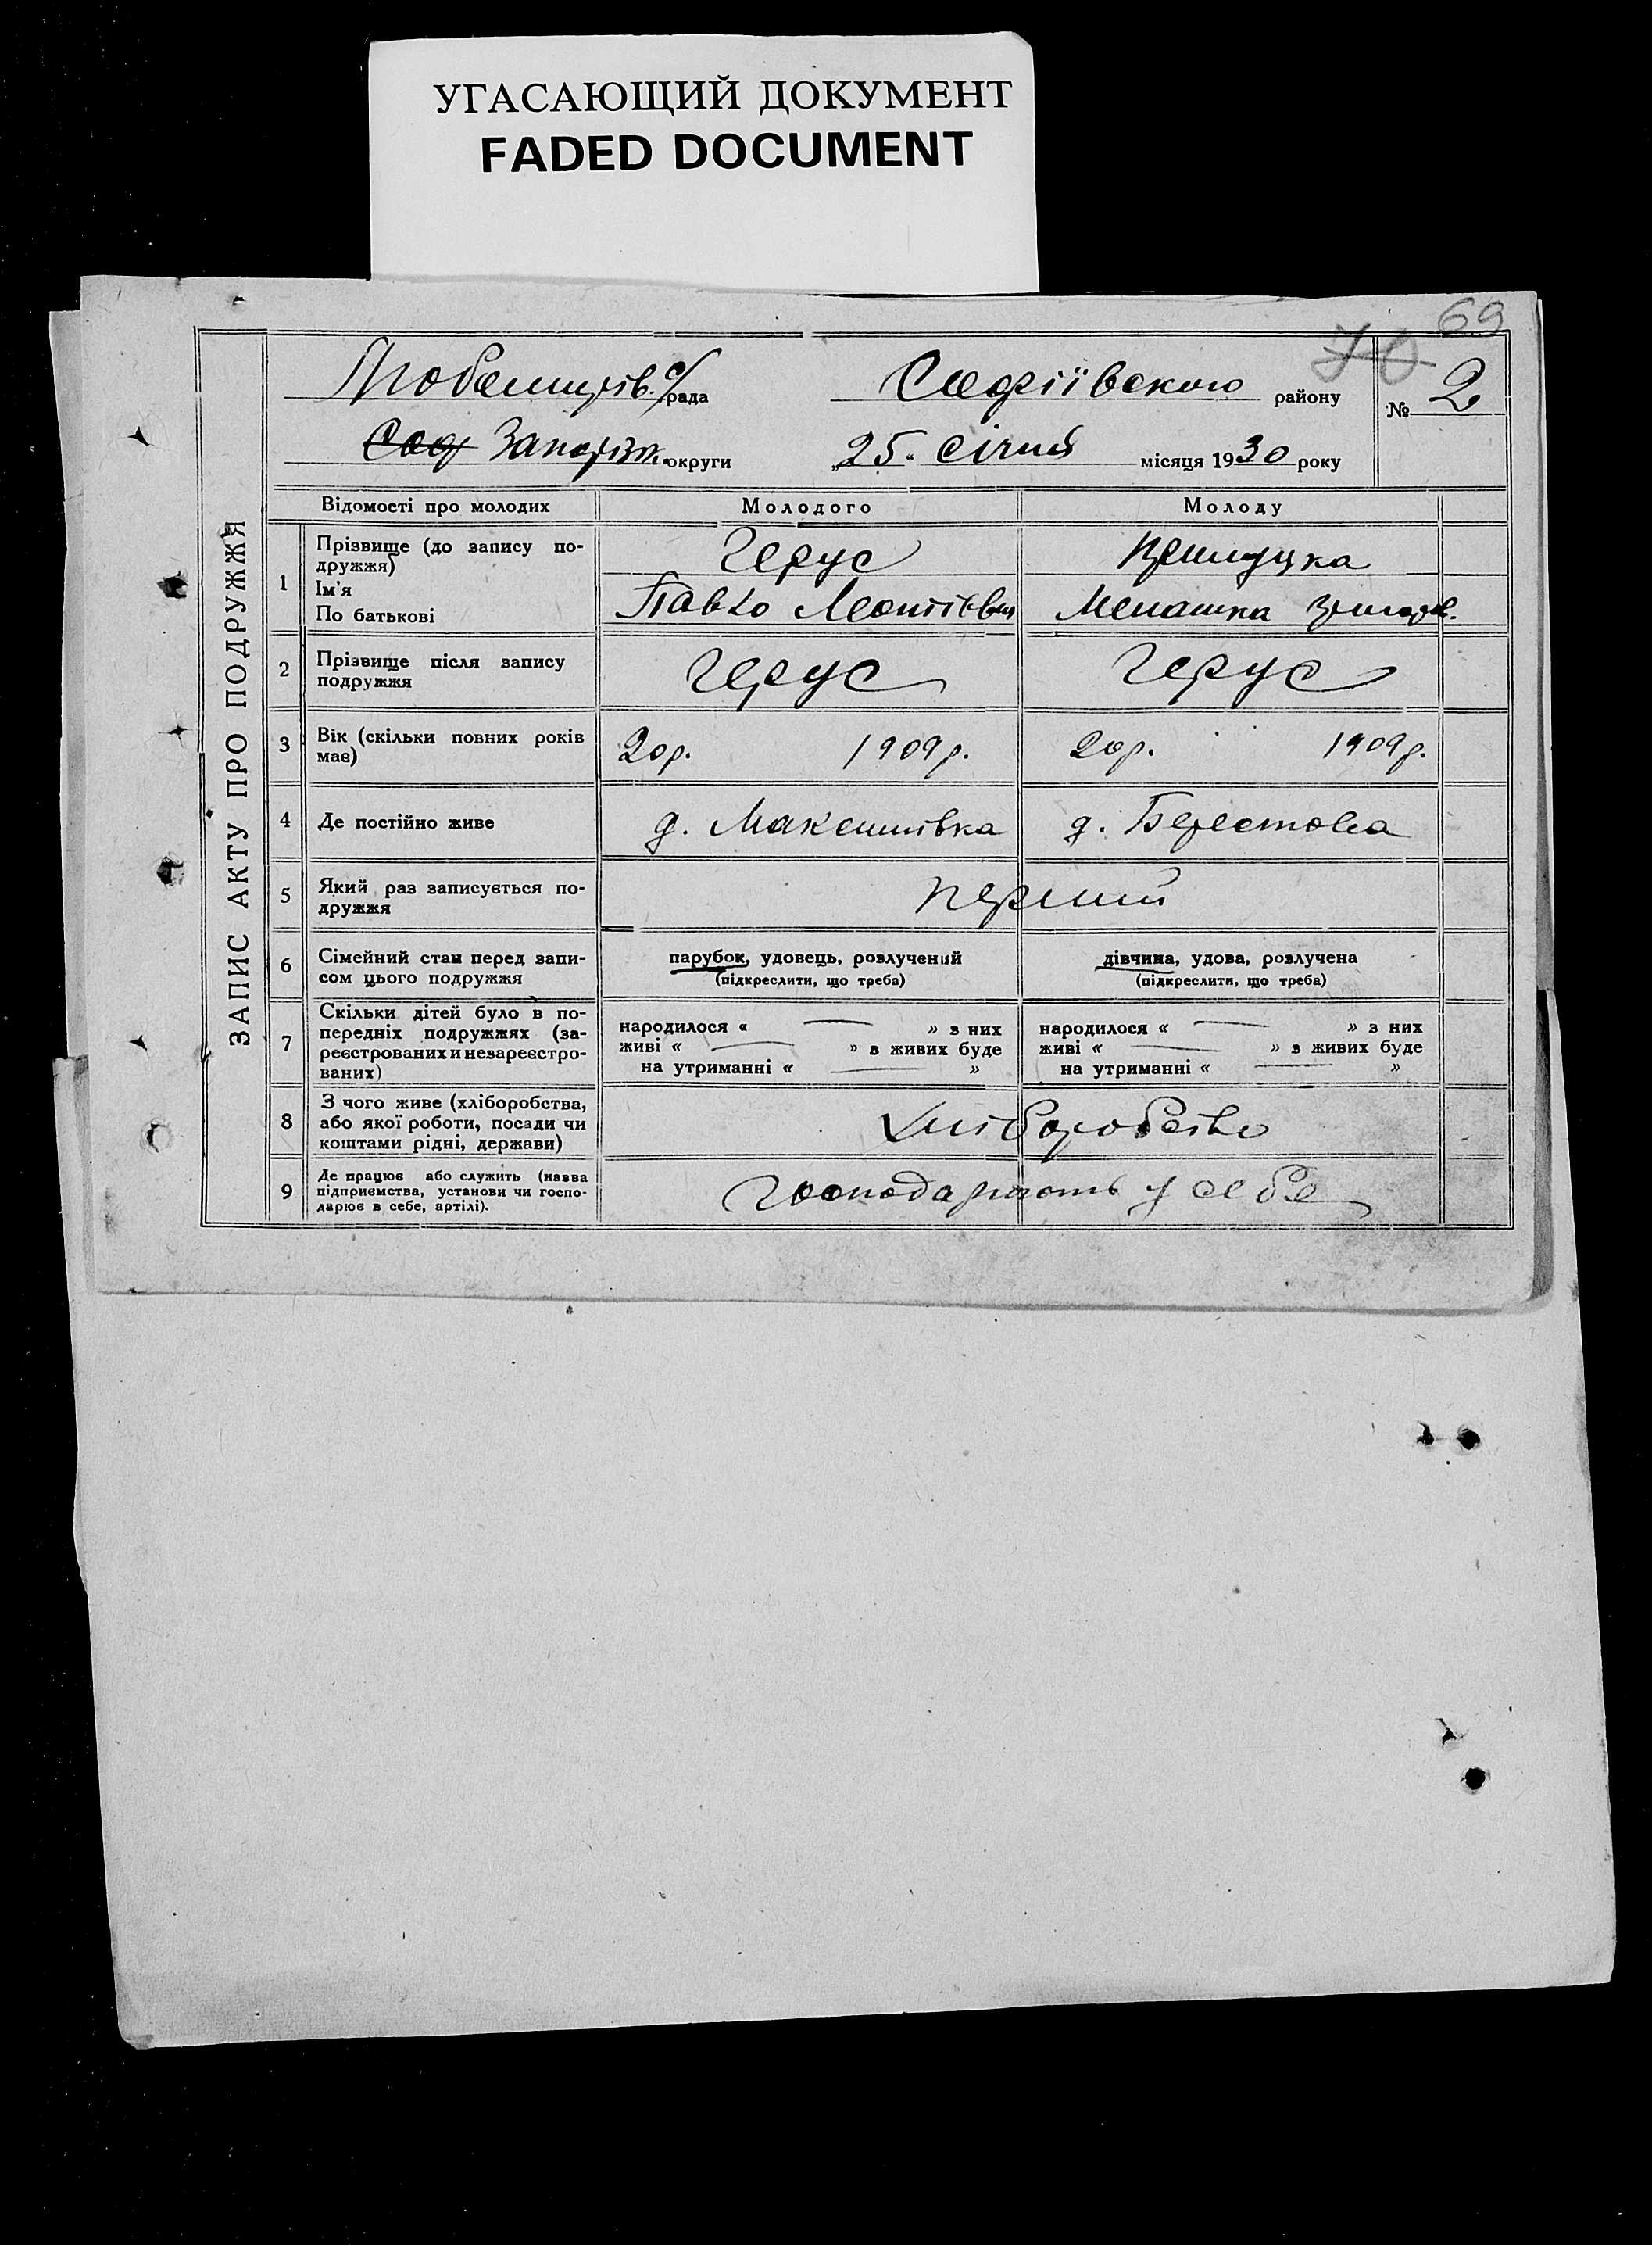 УГАСАЮЩИЙ ДОКУМЕНТ
FADED DOCUMENT
69
70
ЗАПИС АКТУ ПРО ПОДРУЖЖЯ
с/рада
Софіївского району
№ 2
Соф Запоріж. округи
„25“ січня місяця 1930 року
Відомості про молодих
Молодого
Молоду
1
Прізвище (до запису по-
дружжя)
Ім'я
По батькові
Герус
Павло Леонтійвич
Прилуцка
2
Прізвище після запису
подружжя
Герус
Герус
3
Вік (скільки повних років
має)
20р. 1909р.
20р. 1909р.
4
Де постійно живе
д.
д. Берестова
5
Який раз записується по-
дружжя
перший
6
Сімейний стан перед запи-
сом цього подружжя
парубок, удовець, розлучений
(підкреслити, що треба)
дівчина, удова, розлучена
(підкреслити, що треба)
7
Скільки дітей було в по-
передніх подружжях (за-
реєстрованих и незареєстро-
ваних)
народилося « — » з них
живі « — » з живих буде
на утриманні « — »
народилося « — » з них
живі « — » з живих буде
на утриманні « — »
8
З чого живе (хліборобства,
або якої роботи, посади чи
коштами рідні, держави)
хліборобство
9
Де працює або служить (назва
підприємства, установи чи госпо-
дарює в себе, артілі).
господарюють у себе